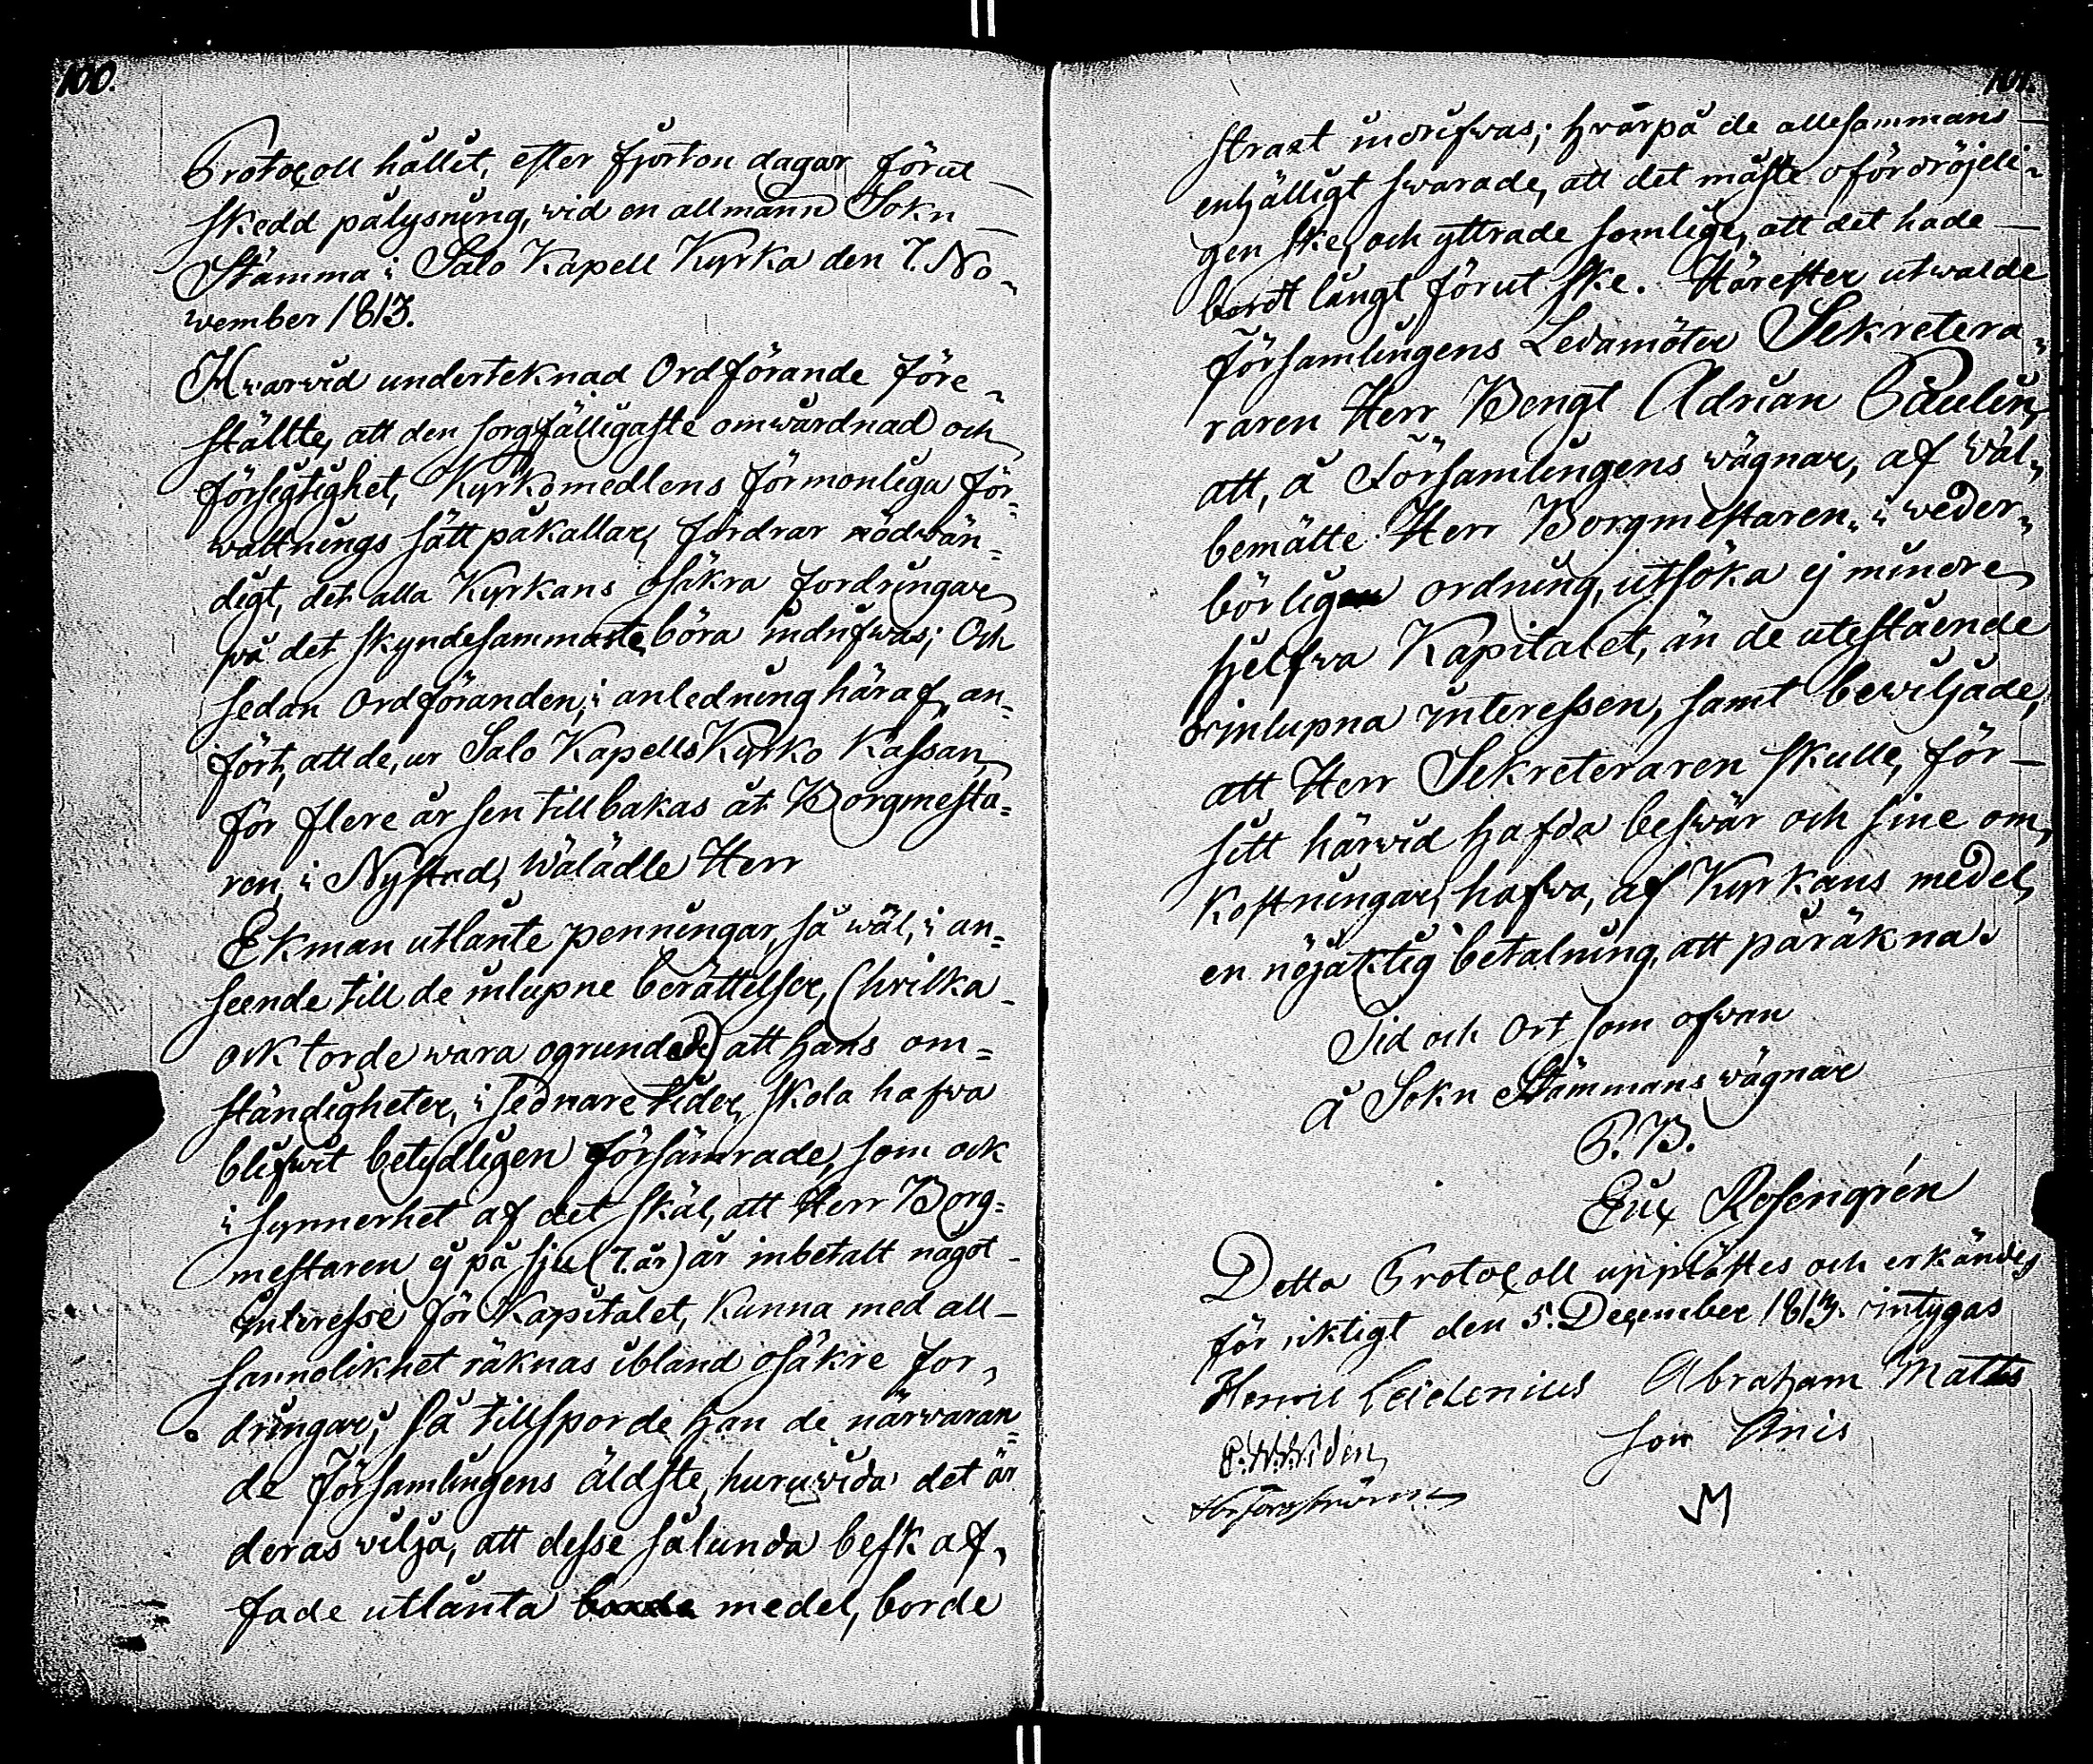 100.
Protocoll hållit, efter fjorton dagar förut
skedd pålysning, wid en allmänn Sokn
Stämma i Salo Kapell Kyrka den 7. No„
wember 1813.
Hwarwid underteknad Ordförande före„
ställte, att den sorgfälligaste omwårdnad och
försigtighet, Kyrkomedlens förmonliga för=
waltnings sätt påkallar, fordrar nödwän=
digt, det alla Kyrkans osäkra fordringar
på det skyndesammaste böra indrifwas; Och
sedan Ordföranden, i anledning häraf, an=
fört, att de, ur Salo Kapells Kyrko Kassan
för flere år sen tillbakas åt Borgmesta=
ren, i Nystad, Wälädle Herr
Ekman utlånte penningar, så wäl, i an=
seende till de inlupne berättelser, (hvilka
ock torde wara ogrundade) att hans om=
ständigheter, i sednare tider, skola hafwa
blifwit betydligen försämrade, som ock
i synnerhet af det skäl, att Herr Borg=
mestaren ej på sju (7. år) år inbetalt något
interesse för Kapitalet, kunna med all
sannolikhet räknas ibland osäkre for„
dringar; så tillsporde han de närwaran=
de Församlingens äldste, huruwida det är
deras wilja, att desse sålunda beskaf„
fade utlånta medel, borde
101.
straxt indrifwas; hvarpå de allesammans
enhälligt swarade, att det måste ofördröjeli„
gen ske, och yttrade somlige, att det hade
bordt långt förut ske. Härefter utwalde
Församlingens Ledamöter Sekretera„
raren Herr Bengt Adrian Paulin,
att, å Församlingens wägnar, af Wäl„
bemälte Herr Borgmestaren, i weder„
börlig ordning, utsöka ej mindre
sjelfwa Kapitalet, än de utestående
oinlupna interessen, samt bewiljade,
att Herr Sekreteraren skulle, för
sitt härwid hafda beswär och sine om„
kostningar, hafwa, af Kyrkans medel,
en nöjaktig betalning, att påräkna.
Tid och Ort som ofwan
å Sokn Stämmans wägnar
Eric Rosengrén
Detta Protocoll upplästes och erkändes
för riktigt den 5. December 1813. intygas
Henric Leidenius Abraham Matts
son Anis
M